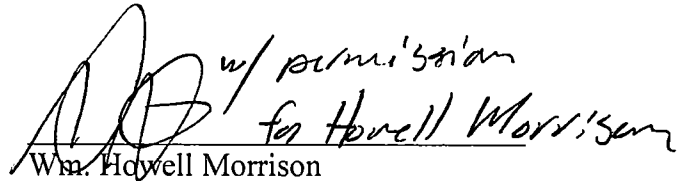 w/ permission
for Howell Morrison
Wm. Howell Morrison